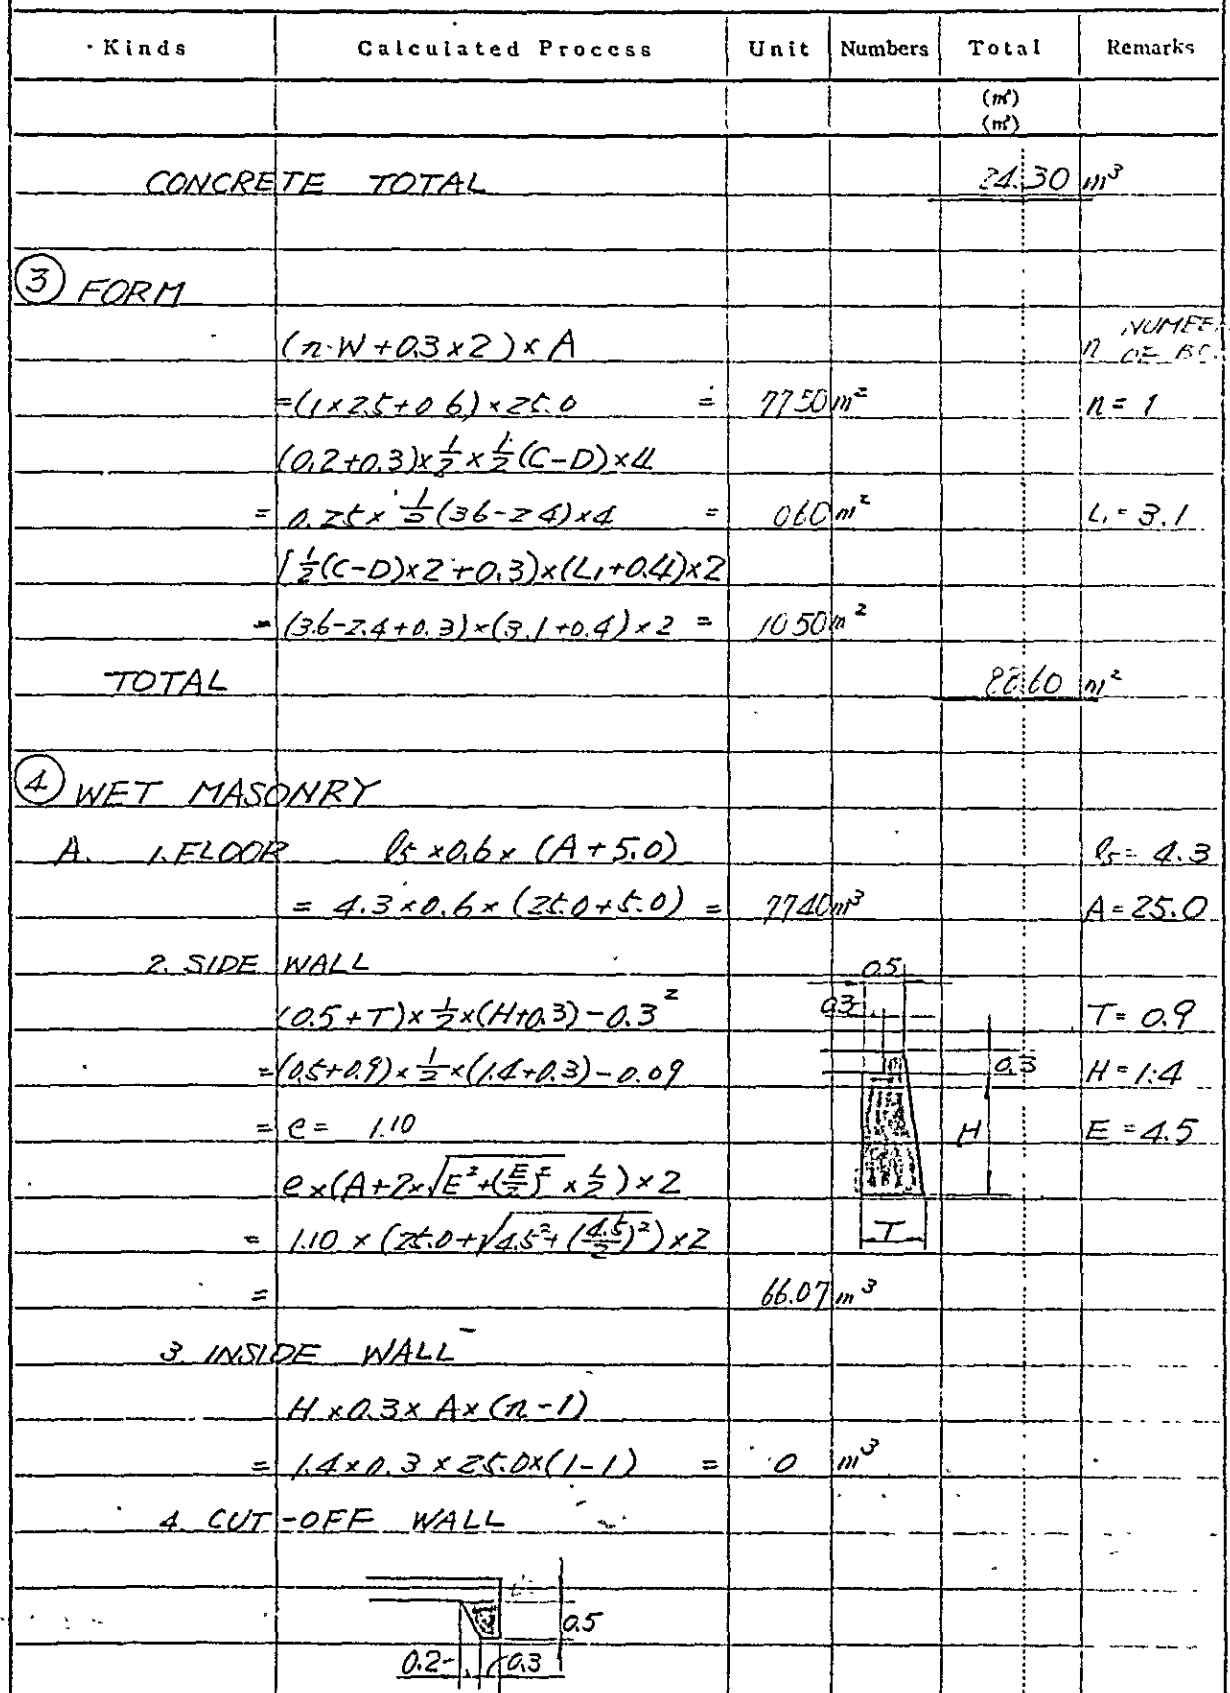 Kinds Calculated Process Unit Numbers Total Remarks
(m³)
(m²)
CONCRETE TOTAL 24.30 m³
③ FORM
(n·W+0.3×2)×A n
=(1×2.5+0.6)×25.0 = 77.50 m² n=1
(0.2+0.3)×1/2×1/2(C-D)×4
= 0.25×1/2(3.6-2.4)×4 = 0.60 m² L₁=3.1
{1/2(C-D)×2+0.3}×(L₁+0.4)×2
= (3.6-2.4+0.3)×(3.1+0.4)×2 = 10.50 m²
TOTAL 88.60 m²
④ WET MASONRY
A. 1. FLOOR ℓ₅×0.6×(A+5.0) ℓ₅=4.3
= 4.3×0.6×(25.0+5.0) = 77.40 m³ A=25.0
2. SIDE WALL 0.5
(0.5+T)×1/2×(H+0.3)-0.3² 0.3 T=0.9
=(0.5+0.9)×1/2×(1.4+0.3)-0.09 0.3 H=1.4
= e = 1.10 H E=4.5
e×(A+2×√E²+(E/2)²×1/2)×2
= 1.10×(25.0+√4.5²+(4.5/2)²)×2 T
= 66.07 m³
3. INSIDE WALL
H×0.3×A×(n-1)
= 1.4×0.3×25.0×(1-1) = 0 m³
4. CUT-OFF WALL
0.5
0.2 0.3